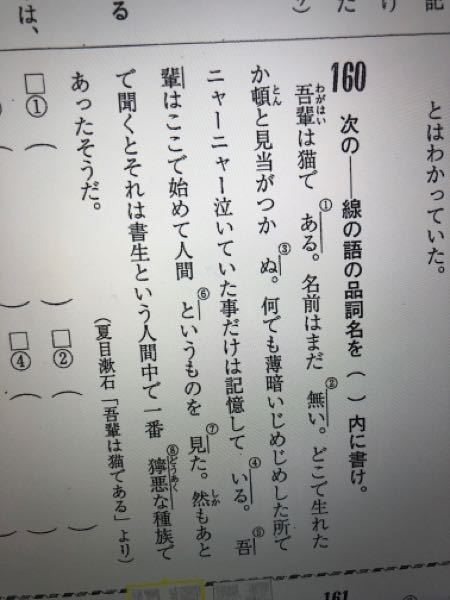 け
記
だ
？）
る
は、
とはわかっていた。
160 次の――線の語の品詞名を（ ）内に書け。
吾輩は猫で ①ある。名前はまだ ②無い。どこで生れた
か頓と見当がつか ③ぬ。何でも薄暗いじめじめした所で
ニャーニャー泣いていた事だけは記憶して ④いる。⑤吾
輩はここで始めて人間 ⑥というものを ⑦見た。然もあと
で聞くとそれは書生という人間中で一番 ⑧獰悪な種族で
あったそうだ。
（夏目漱石「吾輩は猫である」より）
わがはい
とん
しか
どうあく
□①（ ）
□②（ ）
□④（ ）
161